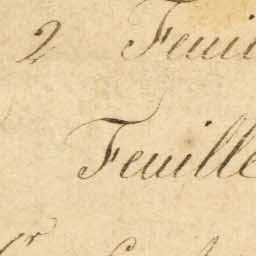 2 Feuil
Feuille